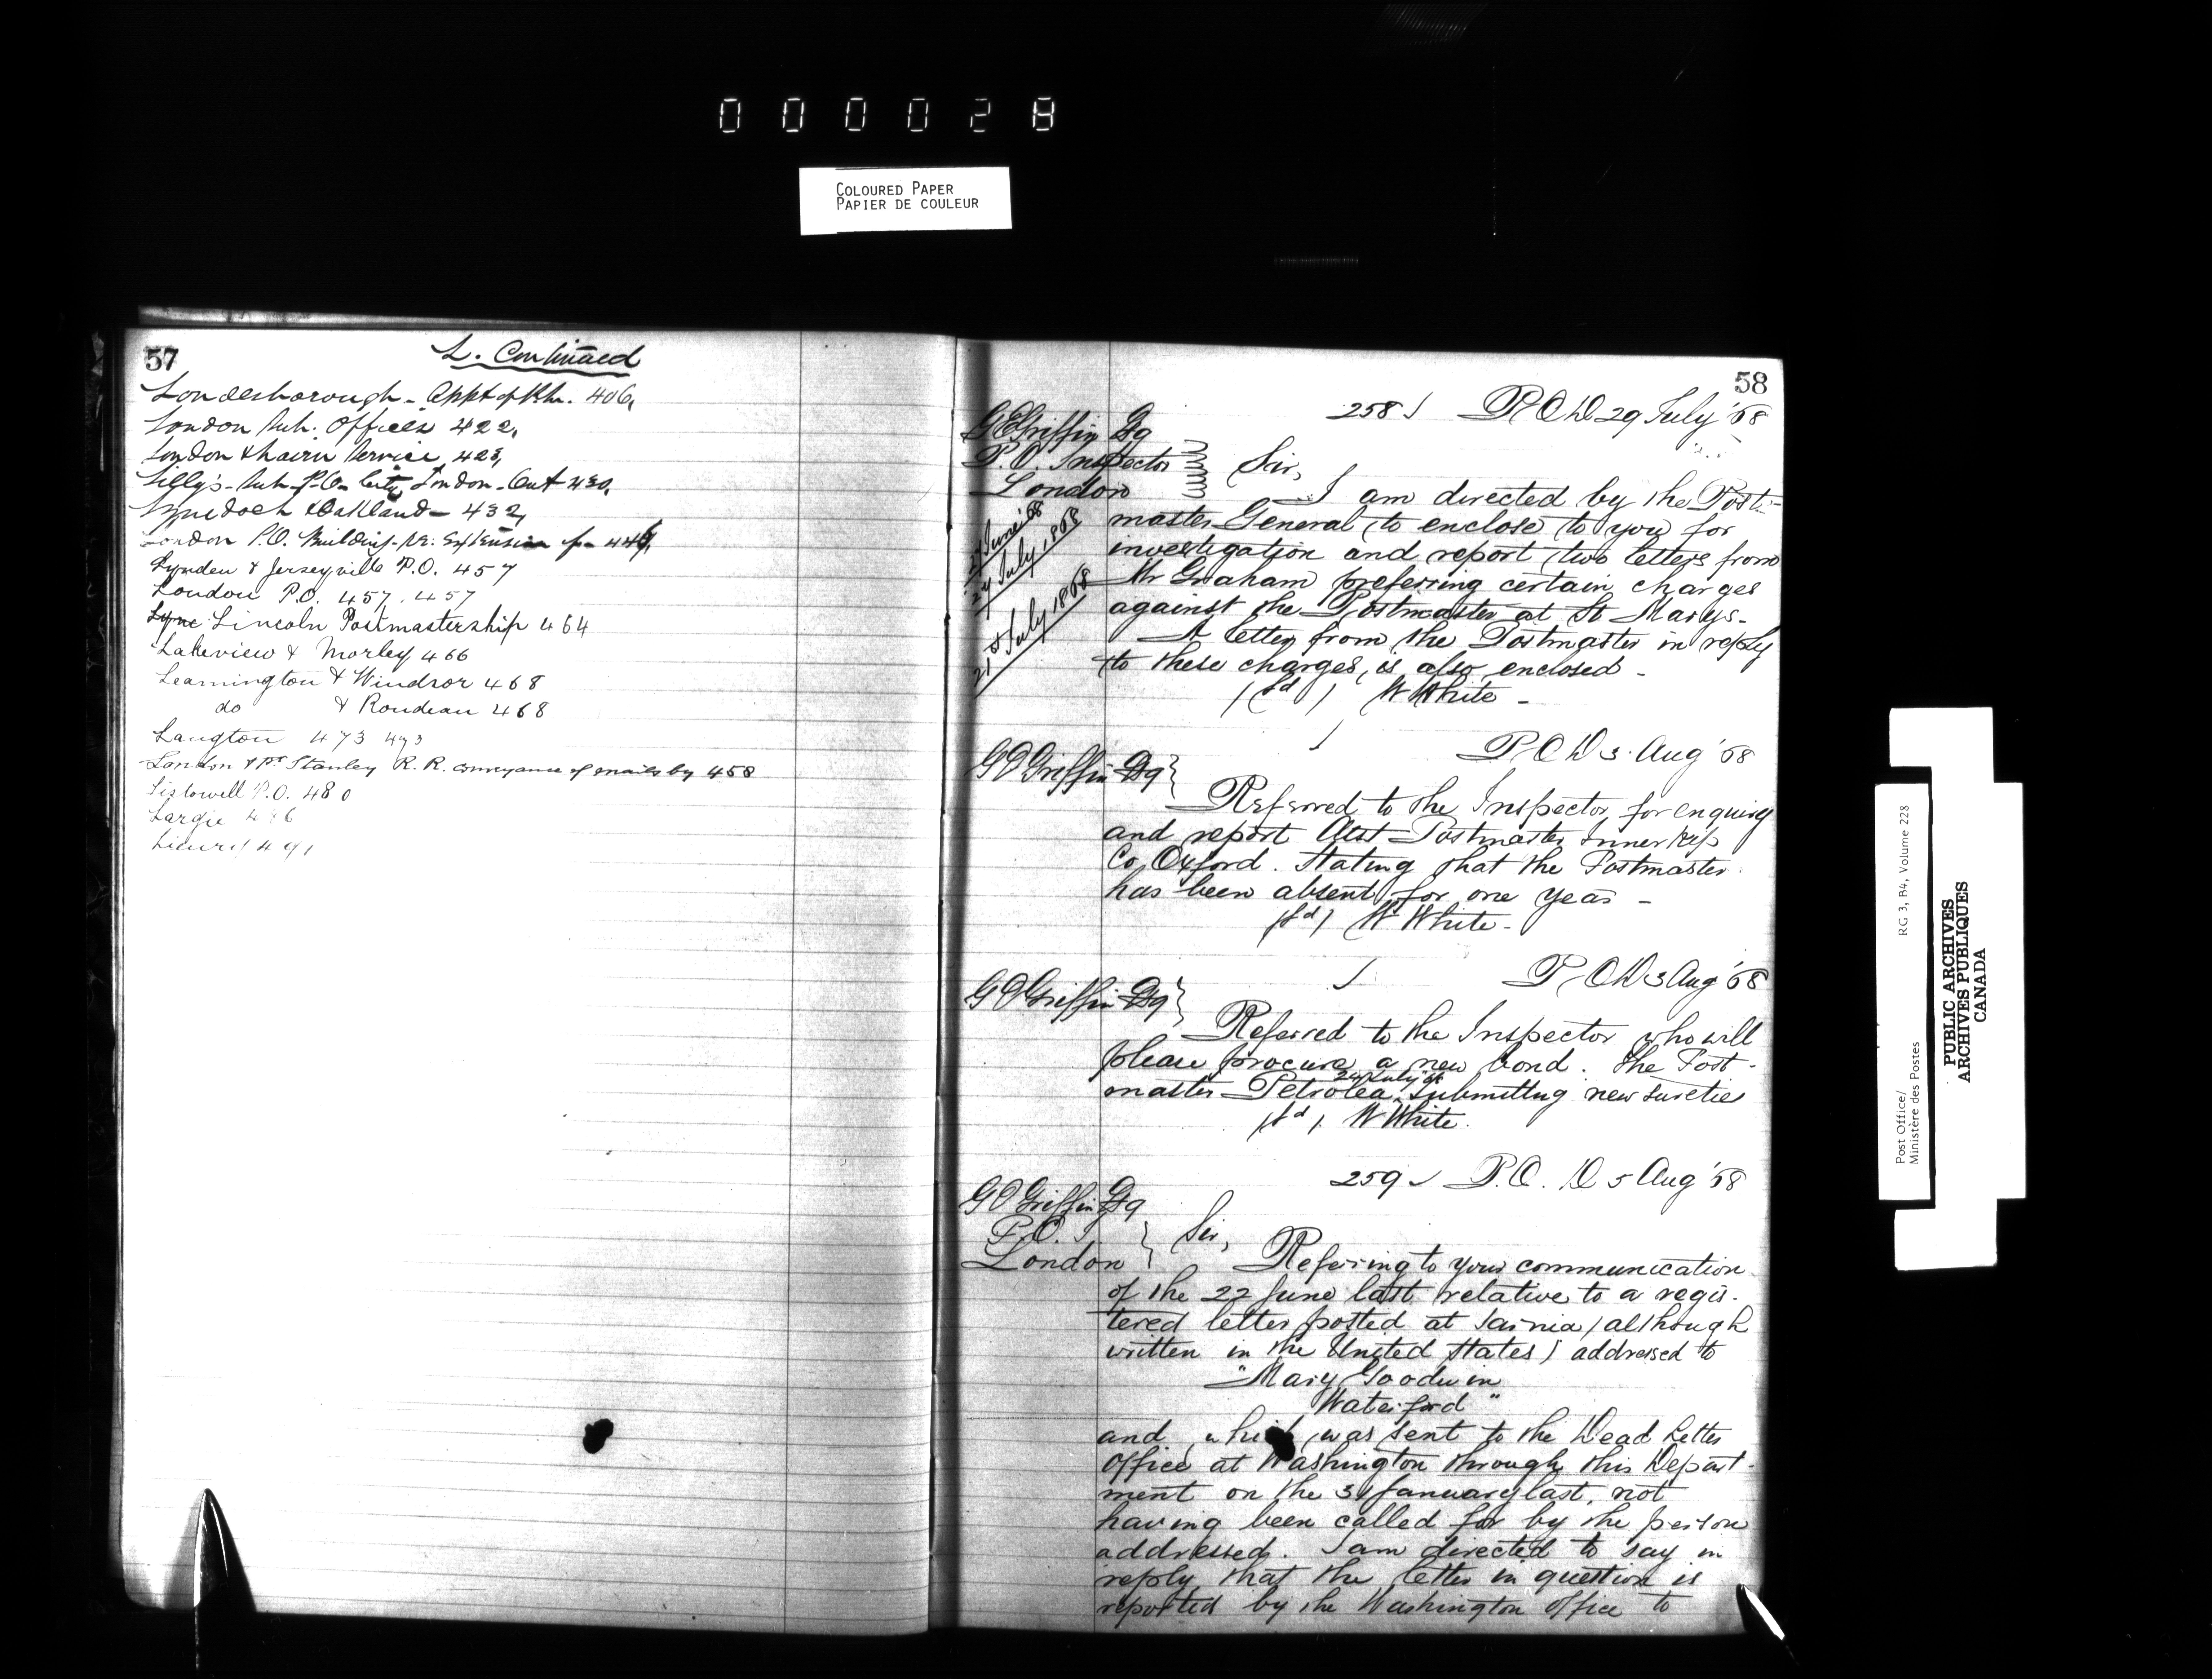 000028
COLOURED PAPER
PAPIER DE COULEUR
57
L. Continued
Londesborough - Appt of P.Mr. 406,
London Sub. Offices 422,
London & Service, 423,
Lilly's - Sub - P.O. City London - Ont 430,
Lynedoch & Oakland - 432,
London P.O. Building - re: Extension p - 446,
Lynden & Jerseyville P.O. 457
London P.O. 457, 457
Lync Lincoln Postmastership 464
Lakeview & Morley 466
Leamington & Windsor 468
do & Rondeau 468
Langton 473 473
London & Pt Stanley R. R. conveyance of mails by 458
Listowell P.O. 480
Largie 486
491
58
258 P.O.D 29 July '68
G E Griffin Esq
P.O. Inspector
London
Sir,
27 June '68
24 July 1868
21st July 1868
I am directed by the Post-
master General to enclose to you for
investigation and report two letters from
Mr Graham preferring certain charges
against the Postmaster at St Marys -
A letter from the Postmaster in reply
to these charges, is also enclosed -
(Sd) W White -
P.O.D 3 Aug '68
G E Griffin Esq
Referred to the Inspector, for enquiry
and report Asst Postmaster Innerkip
Co Oxford. Stating that the Postmaster
has been absent for one year -
(Sd) W White -
P.O.D 3 Aug '68
G E Griffin Esq
Referred to the Inspector who will
please procure a new bond. The Post-
24 July 68
master Petrolea, submitting new sureties
(Sd) W White.
259 P.O. D 5 Aug '68
G E Griffin Esq
P.O. I
London
Sir,
Refering to your communication
of the 22 June last relative to a regis-
tered letter posted at Sarnia (although
written in the United States) addressed to
"Mary Goodwin
Waterford"
and which was sent to the Dead Letter
Office at Washington through this Depart-
ment on the 31 January last, not
having been called for by the person
addressed. I am directed to say in
reply that the letter in question is
reported by the Washington Office to
Post Office/
Ministère des Postes
RG 3, B4, Volume 228
PUBLIC ARCHIVES
ARCHIVES PUBLIQUES
CANADA